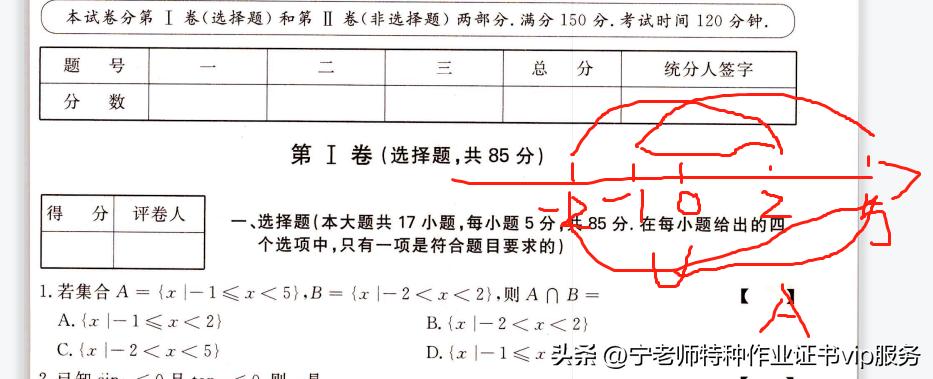 本试卷分第Ⅰ卷(选择题)和第Ⅱ卷(非选择题)两部分.满分150分.考试时间120分钟.
题 号 一 二 三 总 分 统分人签字
分 数
第Ⅰ卷(选择题,共85分)
得 分 评卷人
-2 -1 0 2 5
一、选择题(本大题共17小题,每小题5分,共85分.在每小题给出的四
个选项中,只有一项是符合题目要求的)
U
1.若集合A={x|-1≤x<5},B={x|-2<x<2},则A∩B= 【 A 】
A.{x|-1≤x<2} B.{x|-2<x<2}
C.{x|-2<x<5} D.{x|-1≤x
头条 @宁老师特种作业证书vip服务